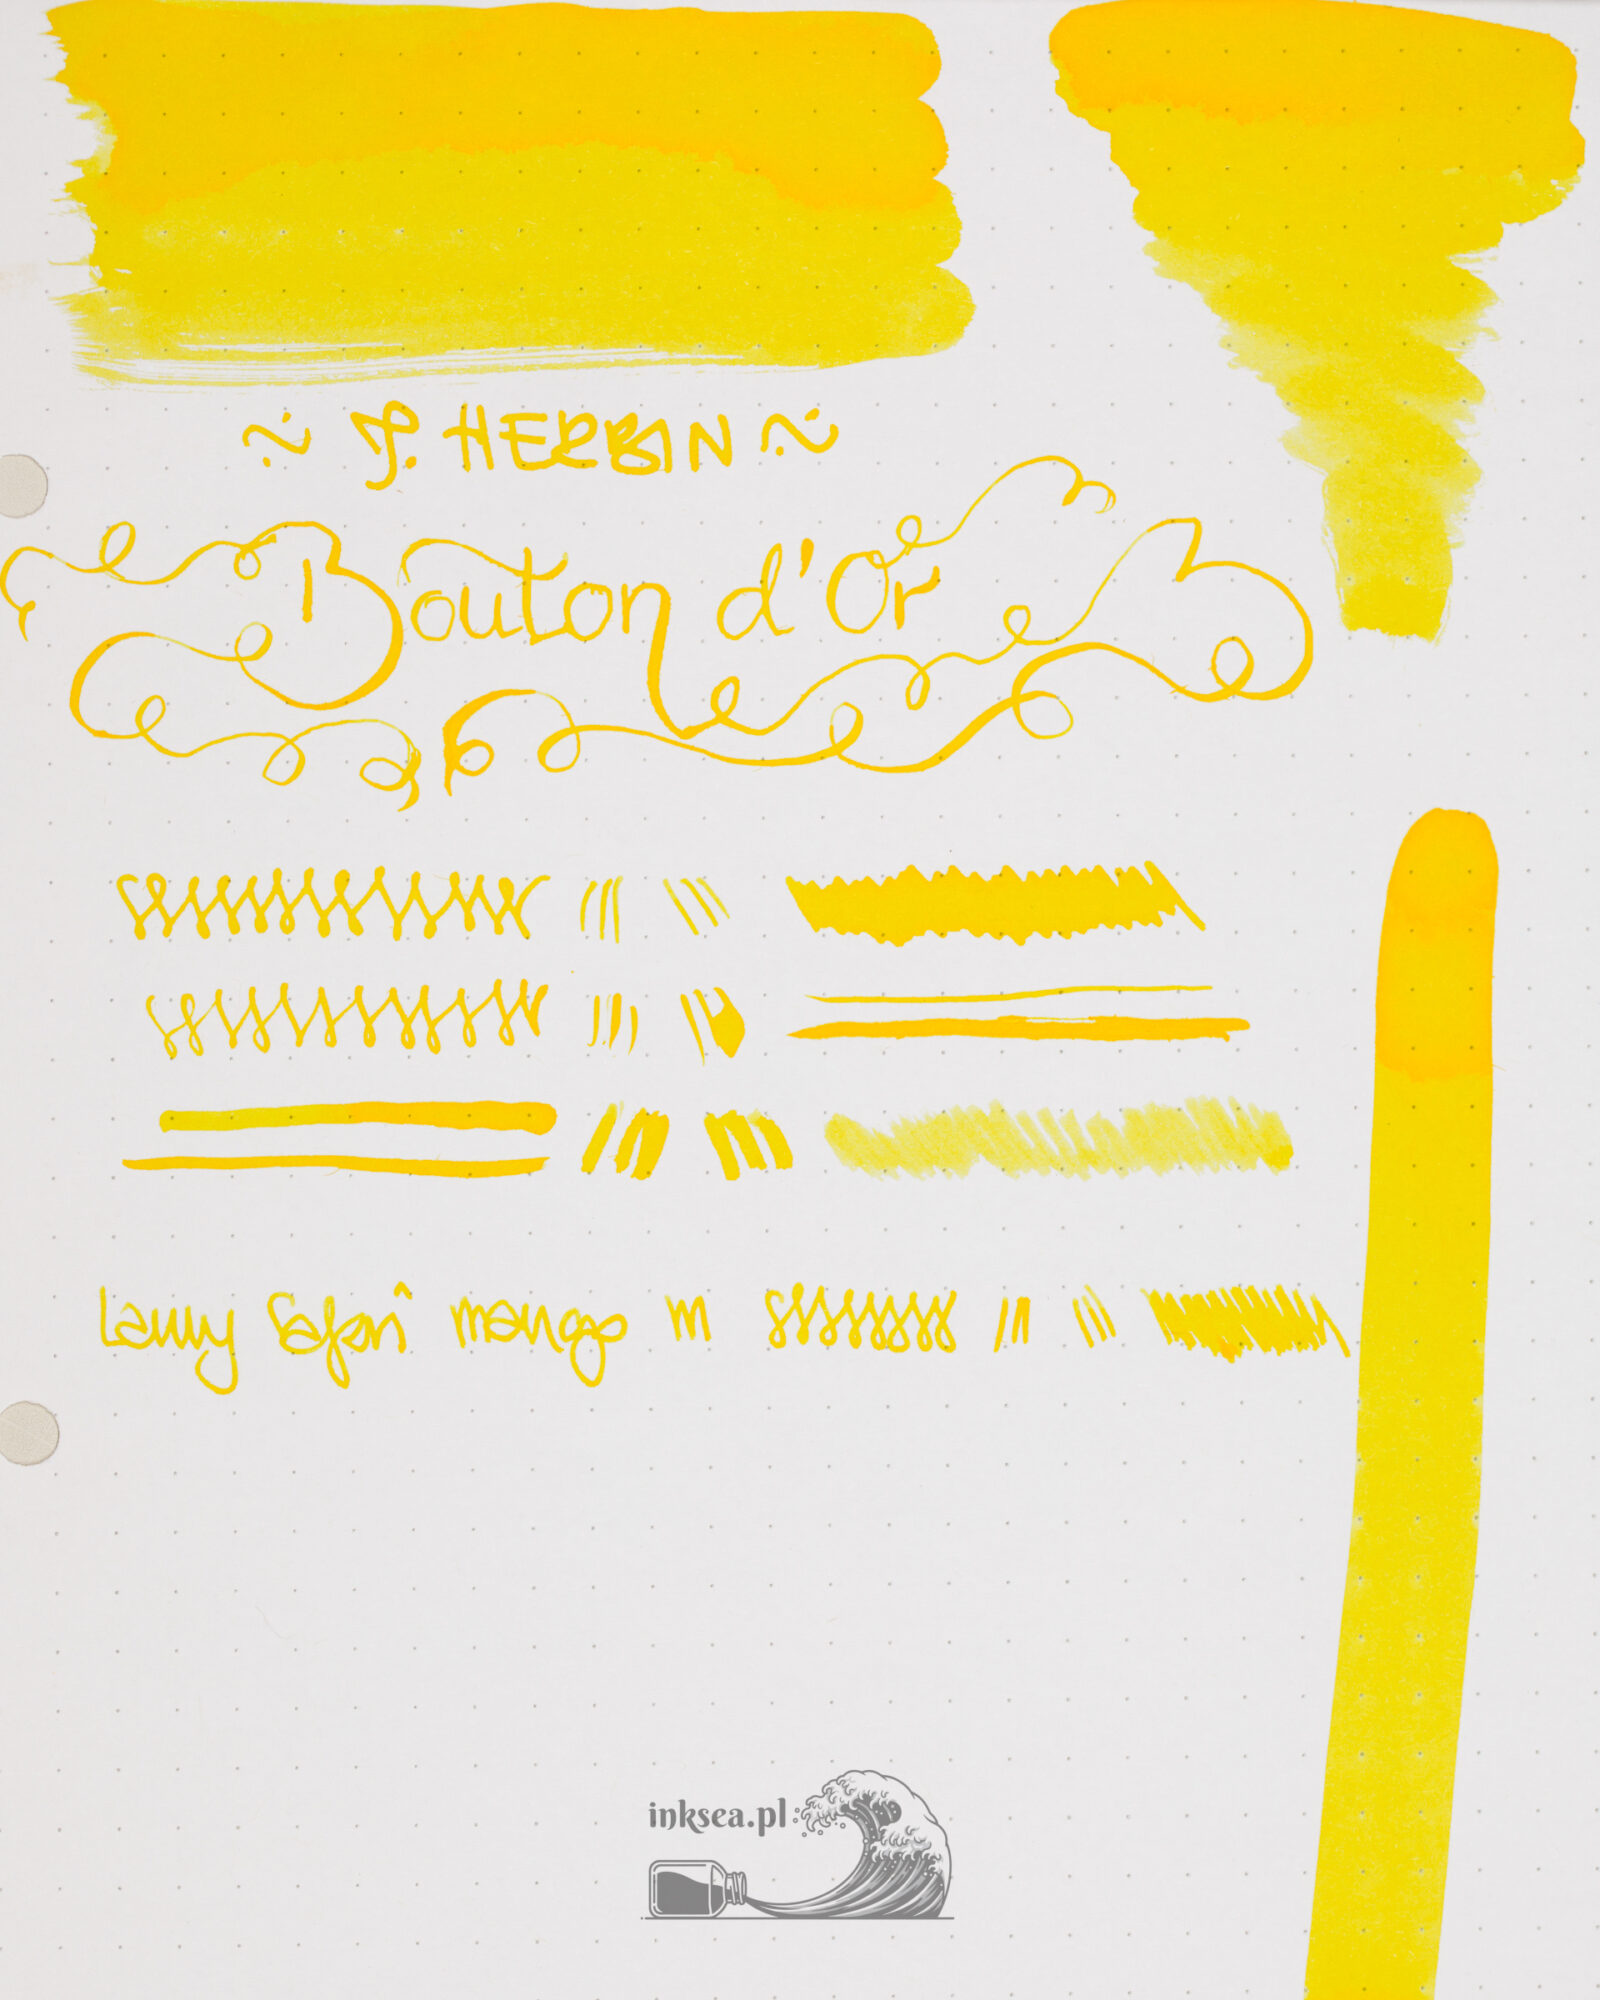 ~ J. HERBIN ~
Bouton d'Or
Lamy Safari mango M
inksea.pl